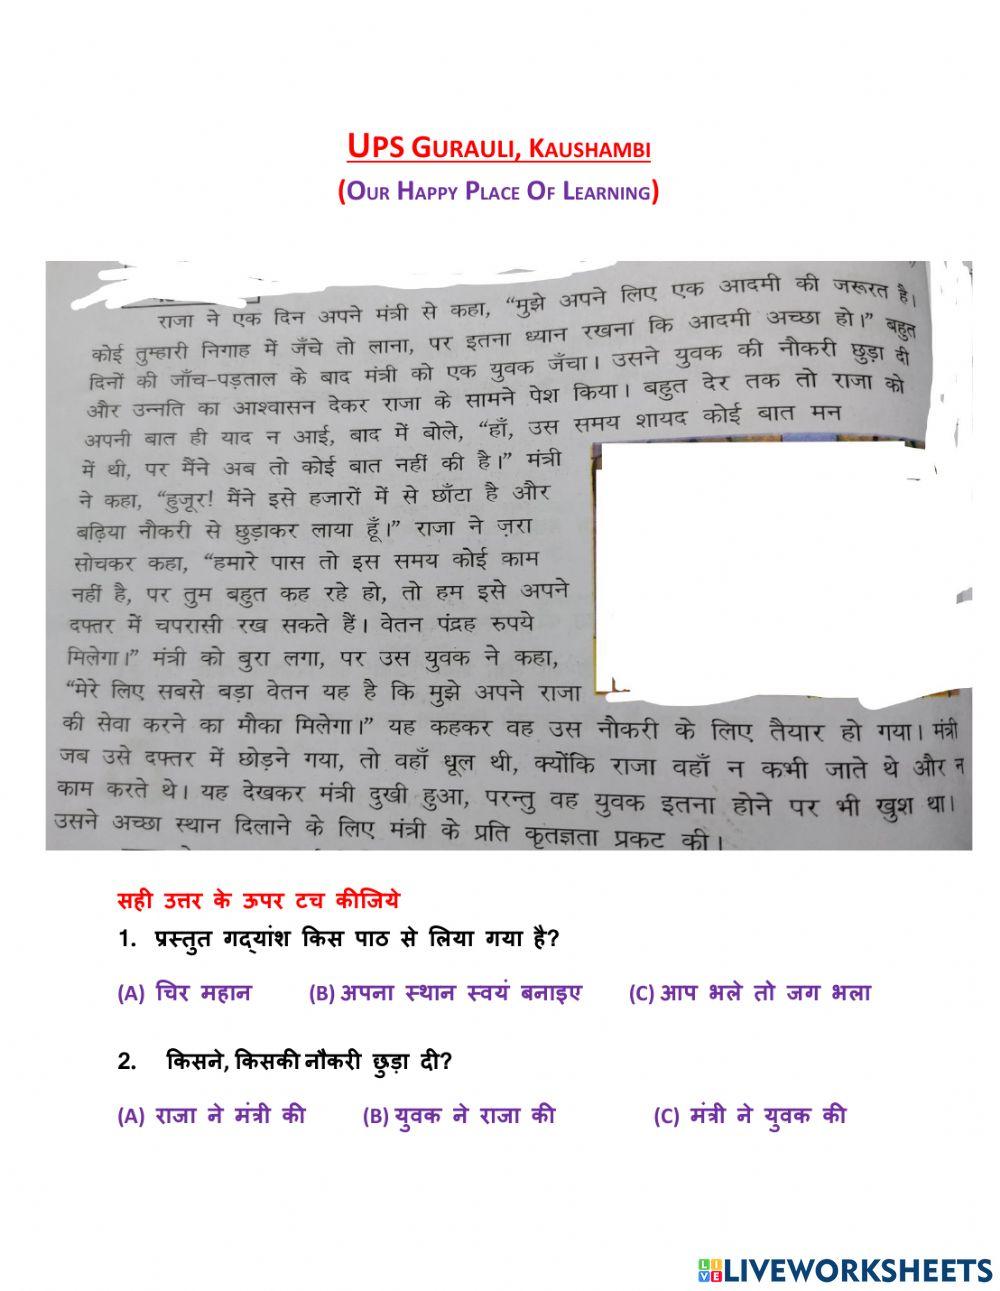 UPS GURAULI, KAUSHAMBI
(OUR HAPPY PLACE OF LEARNING)
राजा ने एक दिन अपने मंत्री से कहा, “मुझे अपने लिए एक आदमी की जरूरत है।
कोई तुम्हारी निगाह में जँचे तो लाना, पर इतना ध्यान रखना कि आदमी अच्छा हो।” बहुत
दिनों की जाँच-पड़ताल के बाद मंत्री को एक युवक जँचा। उसने युवक की नौकरी छुड़ा दी
और उन्नति का आश्वासन देकर राजा के सामने पेश किया। बहुत देर तक तो राजा को
अपनी बात ही याद न आई, बाद में बोले, “हाँ, उस समय शायद कोई बात मन
में थी, पर मैंने अब तो कोई बात नहीं की है।” मंत्री
ने कहा, “हुजूर! मैंने इसे हजारों में से छाँटा है और
बढ़िया नौकरी से छुड़ाकर लाया हूँ।” राजा ने ज़रा
सोचकर कहा, “हमारे पास तो इस समय कोई काम
नहीं है, पर तुम बहुत कह रहे हो, तो हम इसे अपने
दफ्तर में चपरासी रख सकते हैं। वेतन पंद्रह रुपये
मिलेगा।” मंत्री को बुरा लगा, पर उस युवक ने कहा,
“मेरे लिए सबसे बड़ा वेतन यह है कि मुझे अपने राजा
की सेवा करने का मौका मिलेगा।” यह कहकर वह उस नौकरी के लिए तैयार हो गया। मंत्री
जब उसे दफ्तर में छोड़ने गया, तो वहाँ धूल थी, क्योंकि राजा वहाँ न कभी जाते थे और न
काम करते थे। यह देखकर मंत्री दुखी हुआ, परन्तु वह युवक इतना होने पर भी खुश था।
उसने अच्छा स्थान दिलाने के लिए मंत्री के प्रति कृतज्ञता प्रकट की।
सही उत्तर के ऊपर टच कीजिये
1. प्रस्तुत गद्यांश किस पाठ से लिया गया है?
(A) चिर महान (B) अपना स्थान स्वयं बनाइए (C) आप भले तो जग भला
2. किसने, किसकी नौकरी छुड़ा दी?
(A) राजा ने मंत्री की (B) युवक ने राजा की (C) मंत्री ने युवक की
LIVE LIVEWORKSHEETS